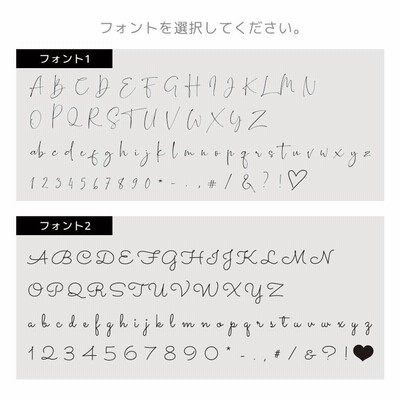 フォントを選択してください。
フォント1
A B C D E F G H I J K L M N
O P Q R S T U V W X Y Z
a b c d e f g h i j k l m n o p q r s t u v w x y z
1 2 3 4 5 6 7 8 9 0 * - . , # / & ? ! ♡
フォント2
A B C D E F G H I J K L M N
O P Q R S T U V W X Y Z
a b c d e f g h i j k l m n o p q r s t u v w x y z
1 2 3 4 5 6 7 8 9 0 * - . , # / & ? ! ♥